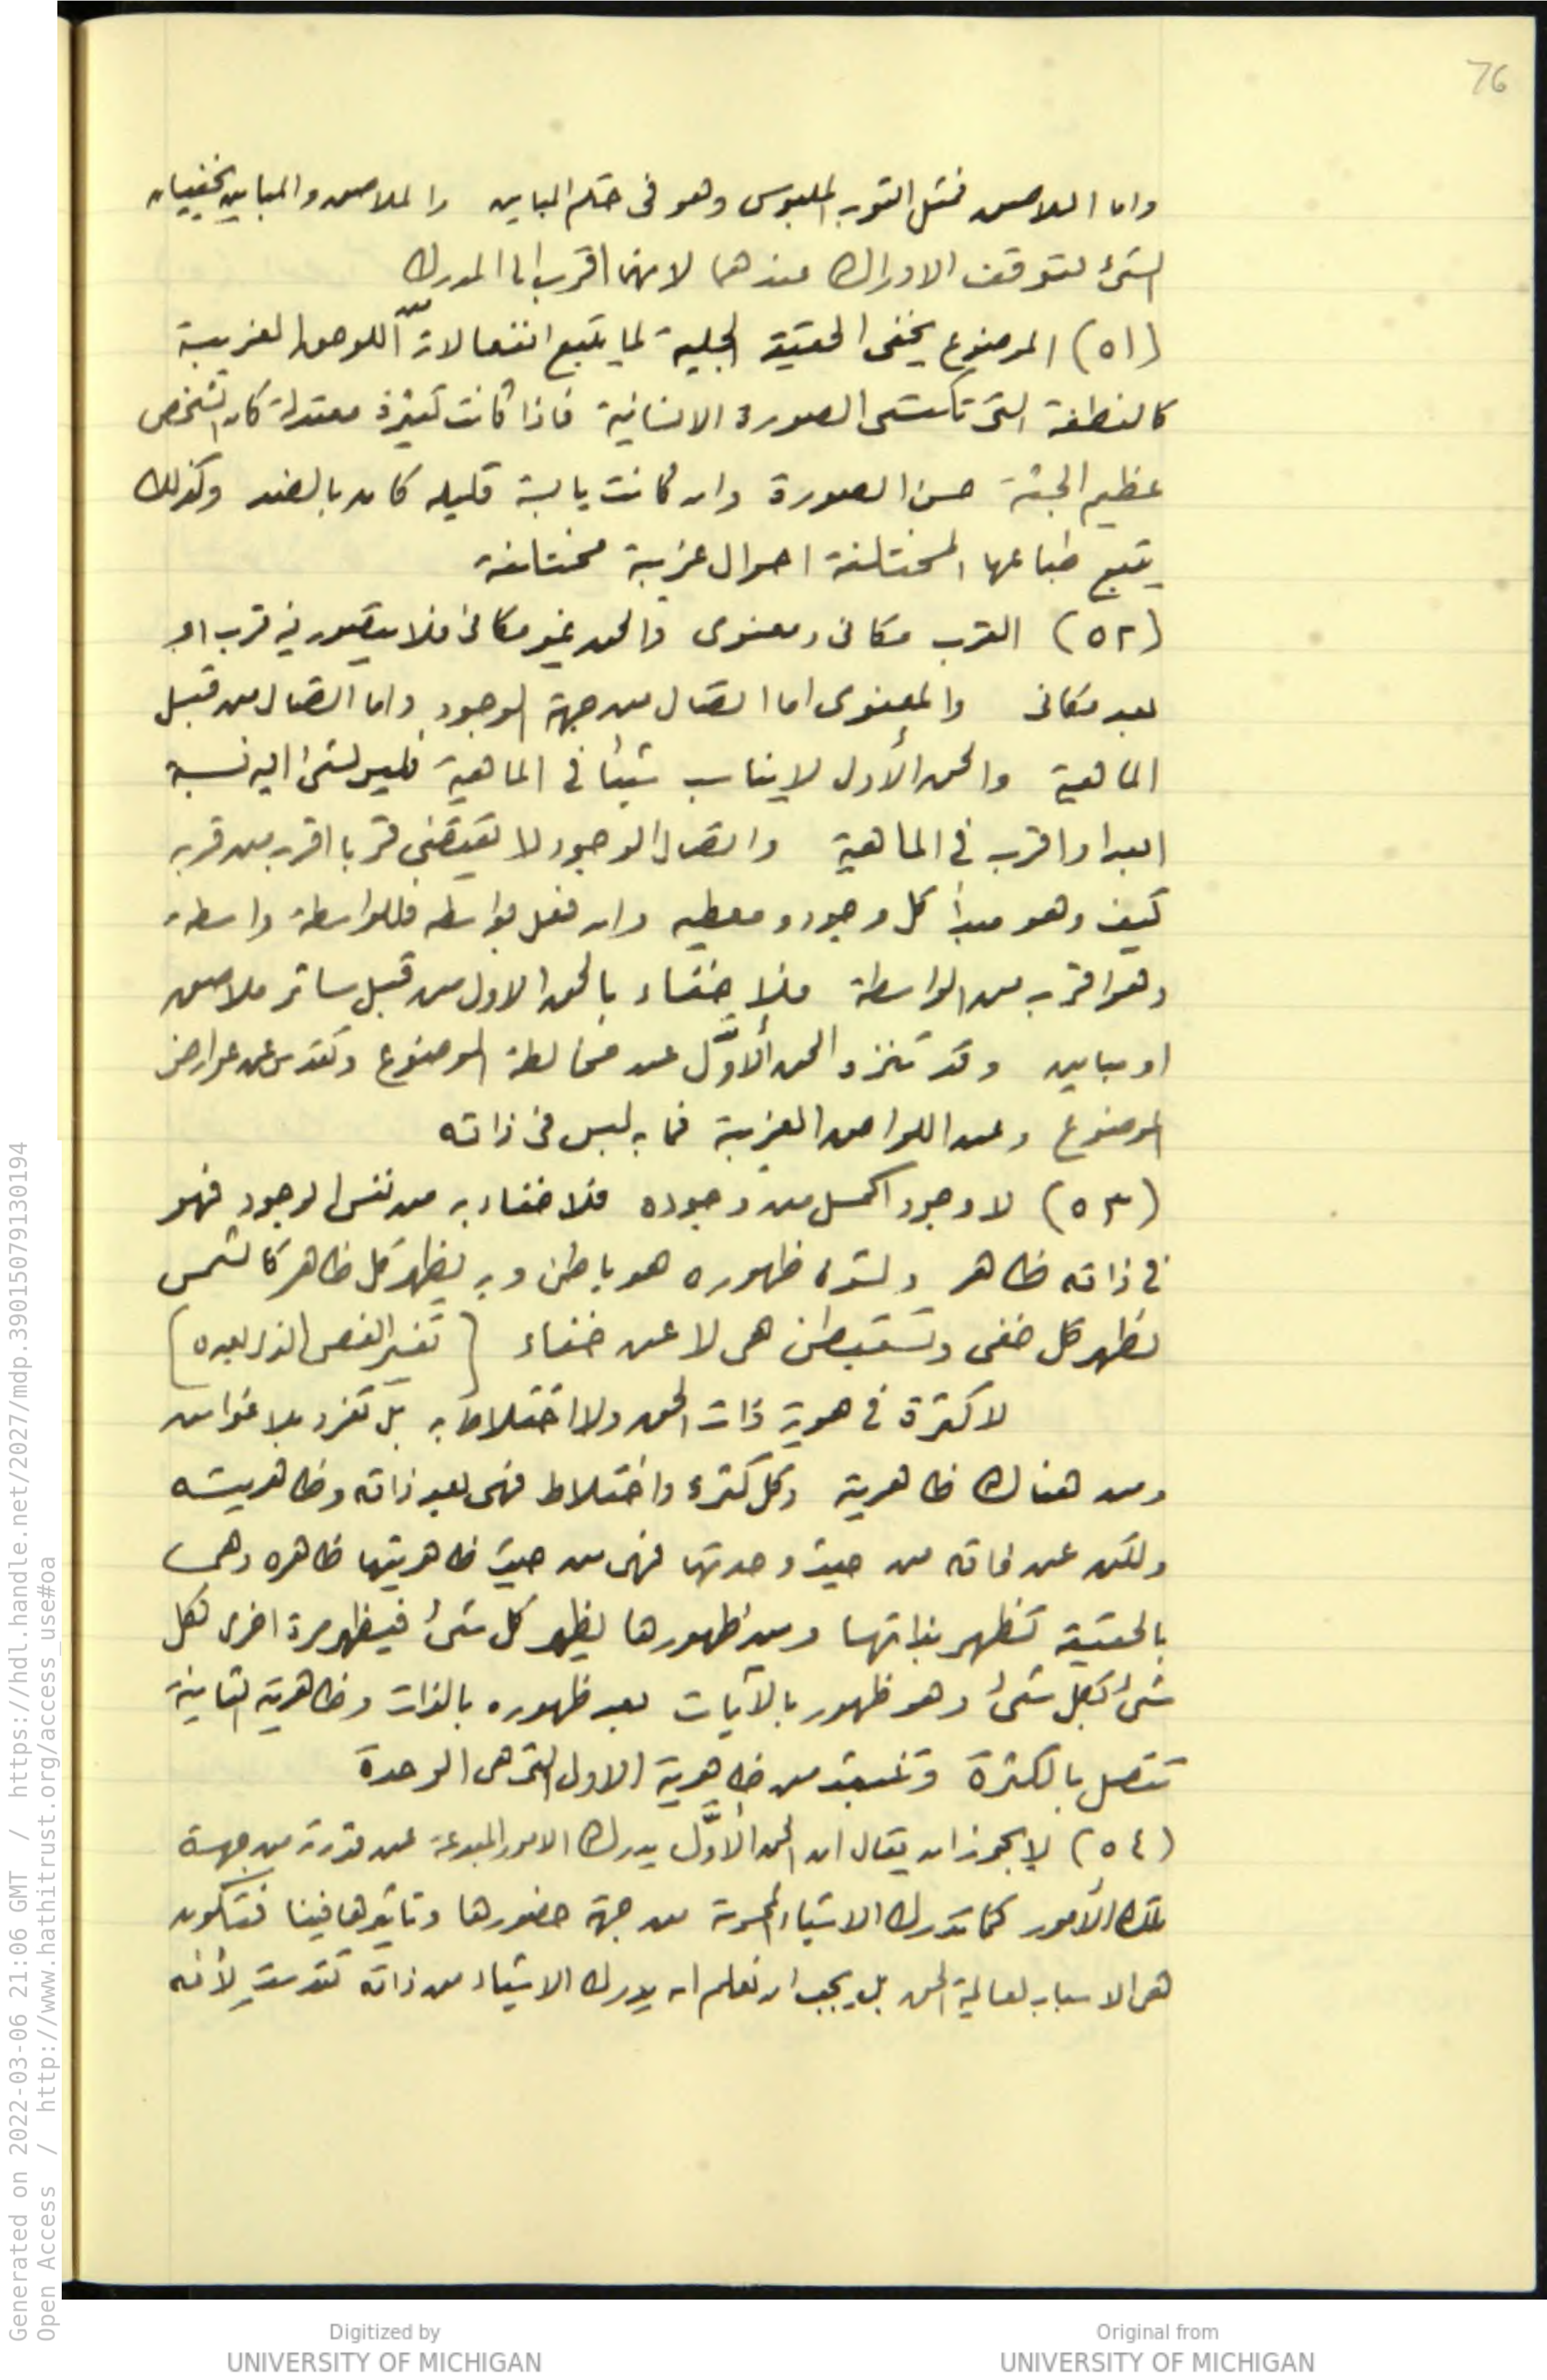 76
واما الملاصق فمثل الثوب الملبوس وهو فى حكم المباين والملاصق والمباين يخفيان
الشئ لتوقف الادراك عندهما لانهما اقرب الى المدرك
(٥١) الموضوع يخفى الحقيقة الجلية لما يتبع انفعالاته من اللواحق الغريبة
كالنطفة التى تكتسى الصورة الانسانية فاذا كانت كثيرة معتدلة كان الشخص
عظيم الجثة حسن الصورة وان كانت يابسة قليله كان بالضد وكذلك
يتبع طباعها المختلفة احوال غريبة مختلفة
(٥٢) القرب مكانى ومعنوى والحق غير مكانى فلا يتصور فيه قرب او
بعد مكانى والمعنوى اما اتصال من جهة الوجود واما اتصال من قبل
الماهية والحق الأول لا يناسب شيئا فى الماهية فليس لشئ اليه نسبة
ابعد او اقرب فى الماهية واتصال الوجود لا يقتضى قربا اقرب من قربه
كيف وهو مبدأ كل وجود ومعطيه وان فعل بواسطه فللواسطة واسطة
وهو اقرب من الواسطة فلا خفاء بالحق الاول من قبل ساتر ملاصق
او مباين وقد تنزه الحق الأوَّل عن مخالطة الموضوع وتقدس عن عوارض
الموضوع وعن اللواحق الغريبة فما به لبس فى ذاته
(٥٣) لا وجود اكمل من وجوده فلا خفاء به من نقص الوجود فهو
فى ذاته ظاهر ولشدة ظهوره هو باطن وبه يظهر كل ظاهر كالشمس
تظهر كل خفى وتستبطن هى لا عن خفاء (تفسير الفص الذى بعده)
لا كثرة فى هوية ذات الحق ولا اختلاط به بل تفرد بلا غواش
ومن هناك ظاهرية وكل كثرة واختلاط فهى بعد ذاته وظاهريته
ولكن عن ذاته من حيث وحدتها فهى من حيث ظاهريتها ظاهره وهى
بالحقيقة تظهر بذاتها ومن ظهورها يظهر كل شئ فيظهر مرة اخرى لكل
شئ بكل شئ وهو ظهور بالآيات بعد ظهوره بالذات وظاهريته الثانية
تتصل بالكثرة وتنبعث من ظاهرية الاول التى هى الوحدة
(٥٤) لا يجوز ان يقال ان الحق الأوَّل يدرك الامور المبدعة عن قدرته من جهة
تلك الأمور كما تدرك الاشياء المحسوسة من جهة حضورها وتأثيرها فينا فتكون
هى الاسباب لعالمية الحق بل يجب ان تعلم انه يدرك الاشياء من ذاته تقدست لأنه
Generated on 2022-03-06 21:06 GMT / https://hdl.handle.net/2027/mdp.39015079130194
Open Access / http://www.hathitrust.org/access_use#oa
Digitized by
UNIVERSITY OF MICHIGAN
Original from
UNIVERSITY OF MICHIGAN